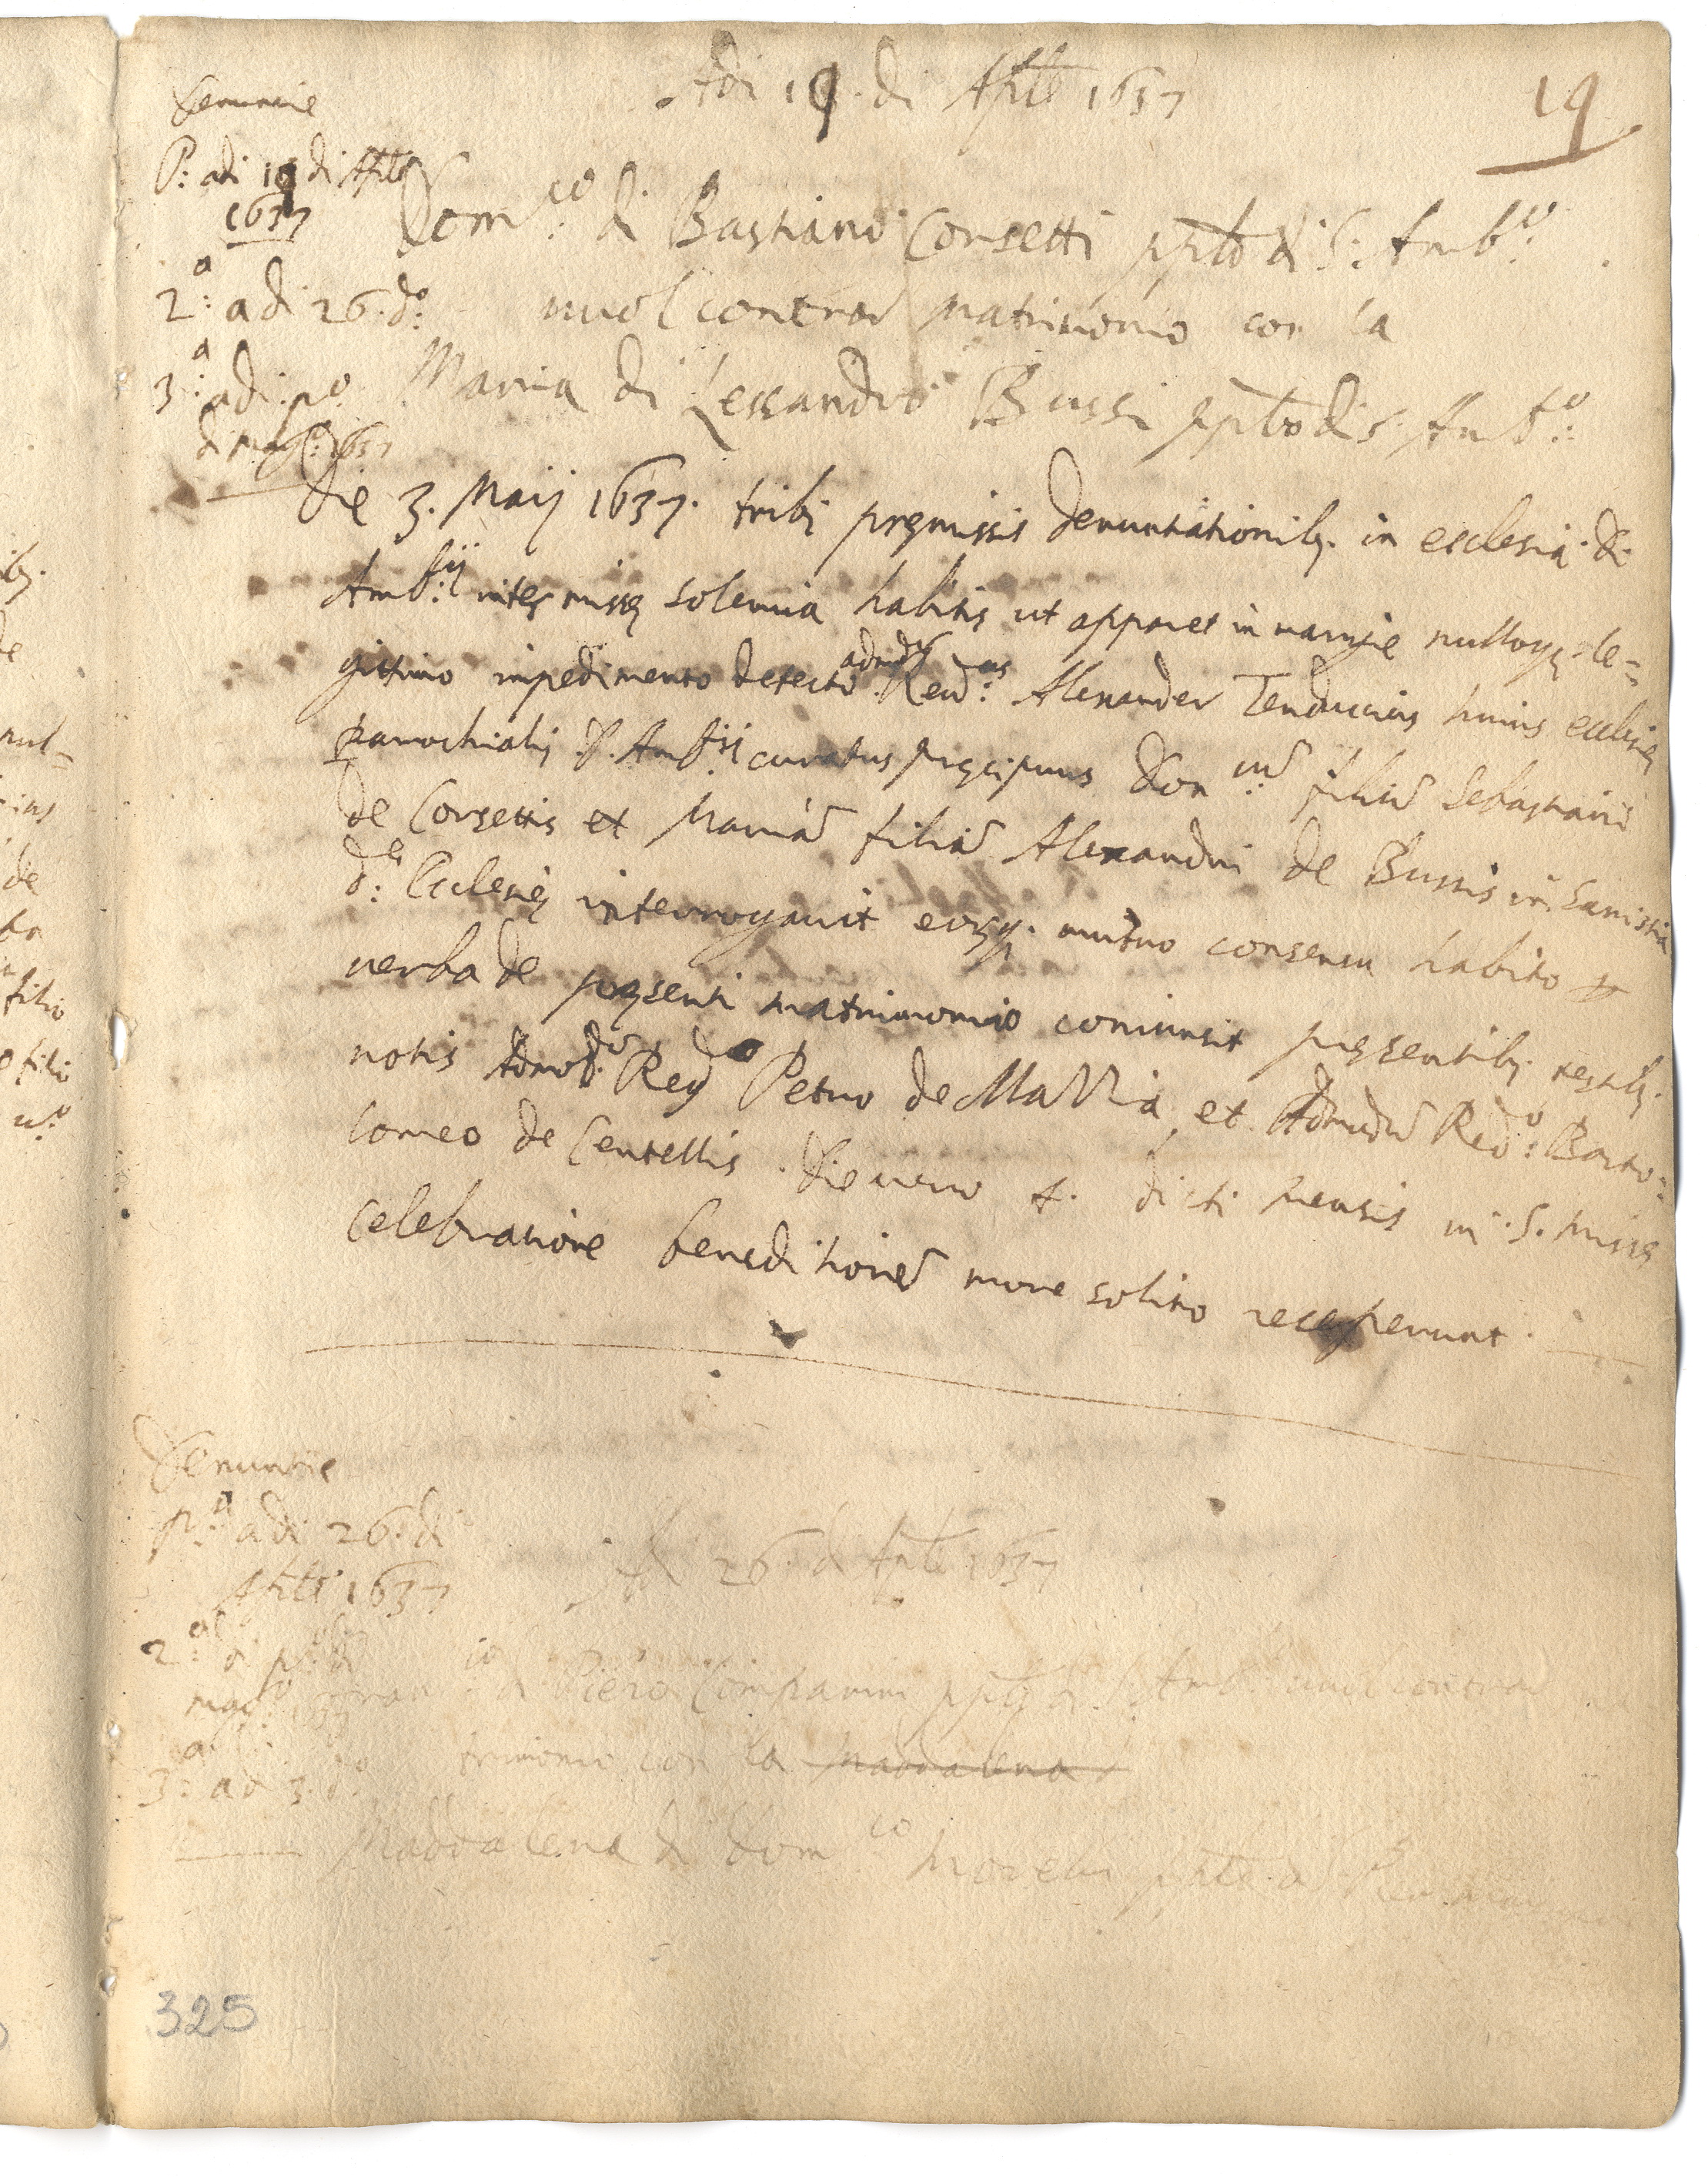 Adi 19. di Aple 1637
19
Denuncie
P: adi 19 di Aple
1637
2.a adi 26. do:
3.a adi po
di magο: 1637
Domco: di Bastiano Corsetti pplo di S: Ambo:
vuol contrar matrimonio con la
Maria di Lessandro Bussi pplo di S. Ambo:
Die 3. Maij 1637. tribq premissis denuntiationibq. in ecclesia. S.
Ambij: inter missę solemia habitis ut apparet in margie nulloqz le=
gittimo impedimento detecto admodũ Reudus: Alexander Tenduccius huius ecclesię
parrochialis S. Ambsij curatus pręcipuus Domcũ: filiũ Sebastiani
de Corsettis et Mariã filiã Alexandri de Bussis in
de: Ecclesię interrogavit eosqz. mutuo consensu habito p
verba de pręsenti matrimonio coniunxit pręsentibq. testibq.
notis Admodũ Redo Petro de Mattia et Admodũ Redo: Barto=
lomeo de Centellis. Die vero 4. dicti mensis in S. Missę
celebratione beneditionẽ more solito receperunt.
Denuntie
pa: adi 26. di
Aple 1637
2.a po: di
mago:
3.a ad 3. do
Adi 26. di Aple 1637
Franco: di Piero Compa pplo di S. Ambo: vuol contrar ma
trimonio con la Maddalena
Maddalena di Domco pplo di
325